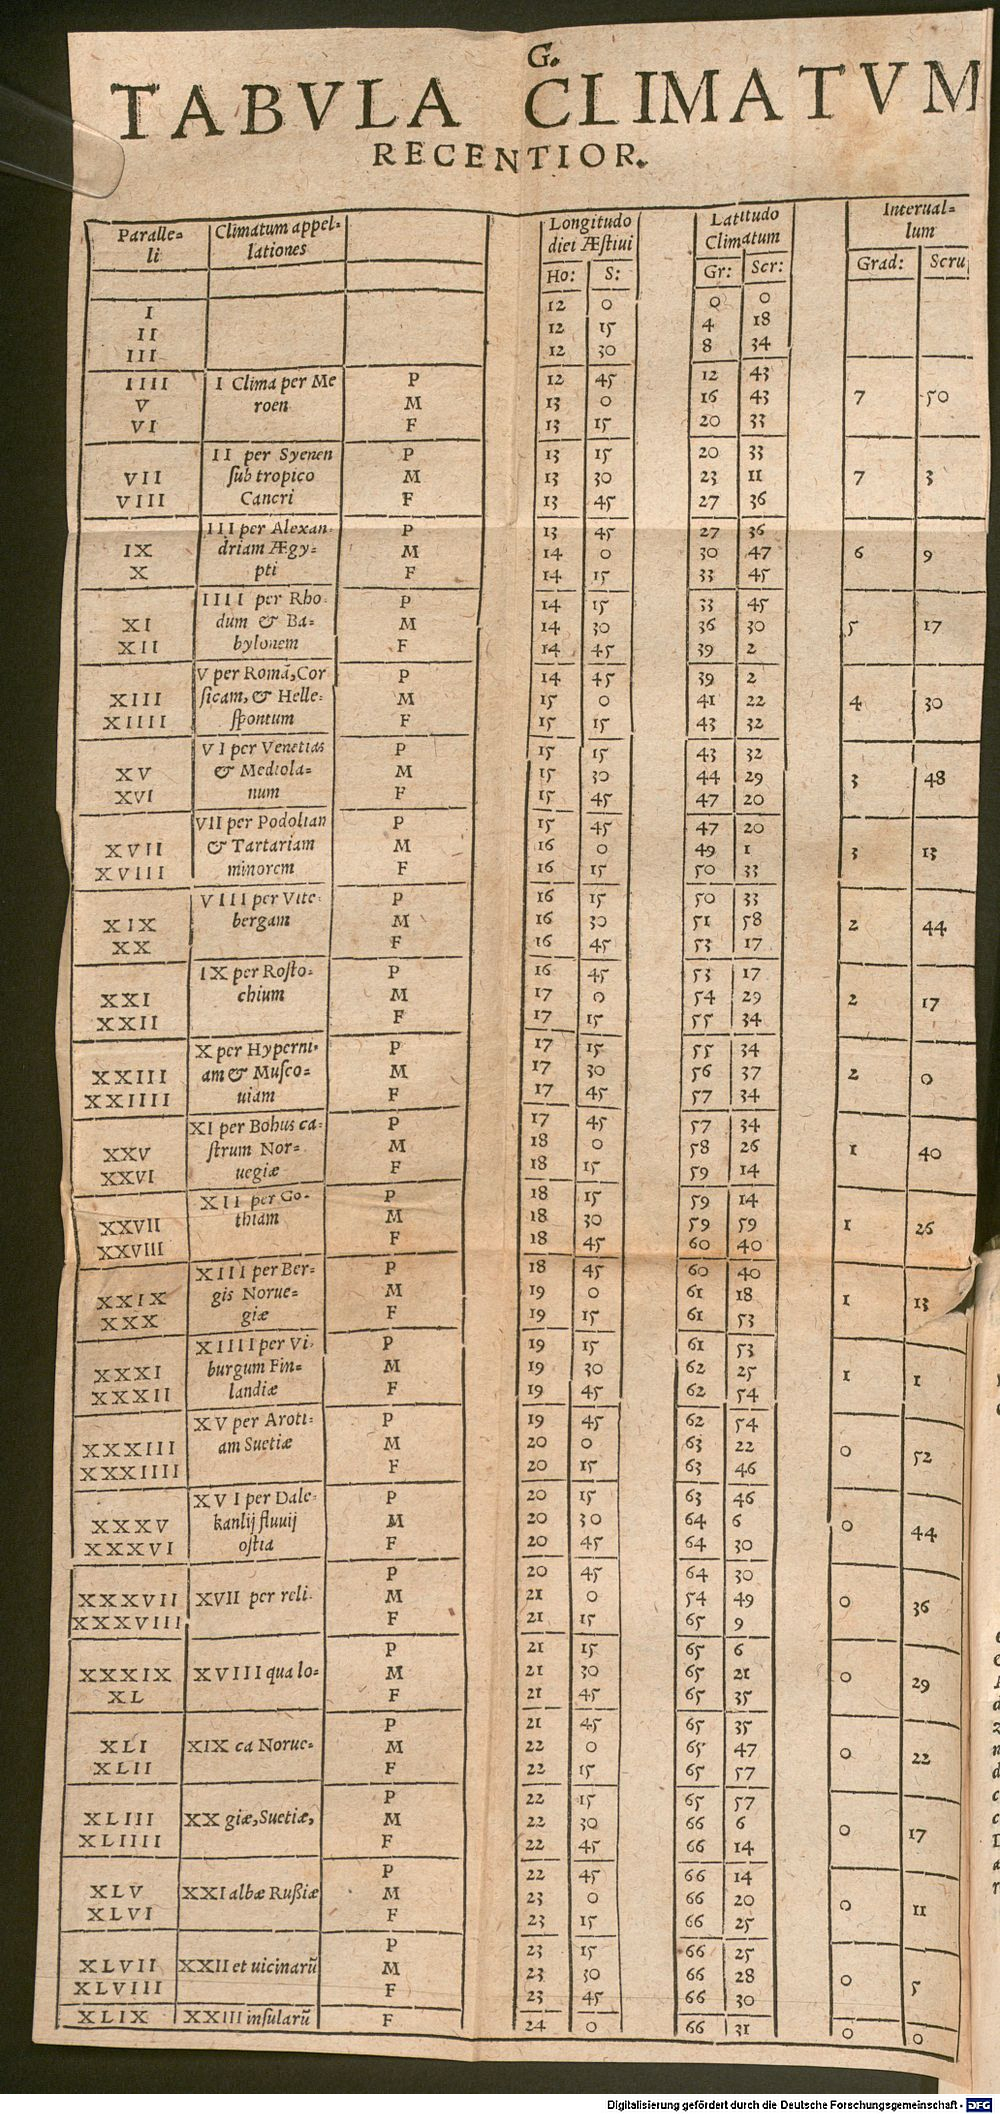 G.
TABVLA CLIMATVM
RECENTIOR.
Paralle= Climatum appel= Longitudo Latitudo Interual=
li lationes diei Æſtiui Climatum lum
Ho: S: Gr: Scr: Grad: Scru
I 12 0 0 0
II 12 15 4 18
III 12 30 8 34
IIII I Clima per Me P 12 45 12 43
V roen M 13 0 16 43 7 50
VI F 13 15 20 33
II per Syenen P 13 15 20 33
VII ſub tropico M 13 30 23 11 7 3
VIII Cancri F 13 45 27 36
III per Alexan- P 13 45 27 36
IX driam Ægy= M 14 0 30 47 6 9
X pti F 14 15 33 45
IIII per Rho- P 14 15 33 45
XI dum & Ba= M 14 30 36 30 5 17
XII bylonem F 14 45 39 2
V per Romã, Cor P 14 45 39 2
XIII ſicam, & Helle= M 15 0 41 22 4 30
XIIII ſpontum F 15 15 43 32
VI per Venetias P 15 15 43 32
XV & Mediola= M 15 30 44 29 3 48
XVI num F 15 45 47 20
VII per Podolian P 15 45 47 20
XVII & Tartariam M 16 0 49 1 3 13
XVIII minorem F 16 15 50 33
VIII per Vite= P 16 15 50 33
XIX bergam M 16 30 51 58 2 44
XX F 16 45 53 17
IX per Roſto= P 16 45 53 17
XXI chium M 17 0 54 29 2 17
XXII F 17 15 55 34
X per Hyperni= P 17 15 55 34
XXIII am & Muſco= M 17 30 56 37 2 0
XXIIII uiam F 17 45 57 34
XI per Bohus ca= P 17 45 57 34
XXV ſtrum Nor= M 18 0 58 26 1 40
XXVI uegiæ F 18 15 59 14
XII per Go- P 18 15 59 14
XXVII thiam M 18 30 59 59 1 26
XXVIII F 18 45 60 40
XIII per Ber= P 18 45 60 40
XXIX gis Norue= M 19 0 61 18 1 13
XXX giæ F 19 15 61 53
XIIII per Vi- P 19 15 61 53
XXXI burgum Fin= M 19 30 62 25 1 1
XXXII landiæ F 19 45 62 54
XV per Aroti= P 19 45 62 54
XXXIII am Suetiæ M 20 0 63 22 0 52
XXXIIII F 20 15 63 46
XVI per Dale= P 20 15 63 46
XXXV kanlij fluuij M 20 30 64 6 0 44
XXXVI oſtia F 20 45 64 30
P 20 45 64 30
XXXVII XVII per reli- M 21 0 54 49 0 36
XXXVIII F 21 15 65 9
P 21 15 65 6
XXXIX XVIII qua lo= M 21 30 65 21 0 29
XL F 21 45 65 35
P 21 45 65 35
XLI XIX ca Norue= M 22 0 65 47 0 22
XLII F 22 15 65 57
P 22 15 65 57
XLIII XX giæ, Suetiæ, M 22 30 66 6 0 17
XLIIII F 22 45 66 14
P 22 45 66 14
XLV XXI albæ Rußiæ M 23 0 66 20 0 11
XLVI F 23 15 66 25
P 23 15 66 25
XLVII XXII et uicinarũ M 23 30 66 28 0 5
XLVIII F 23 45 66 30
XLIX XXIII inſularũ F 24 0 66 31 0 0
Digitalisierung gefördert durch die Deutsche Forschungsgemeinschaft - DFG